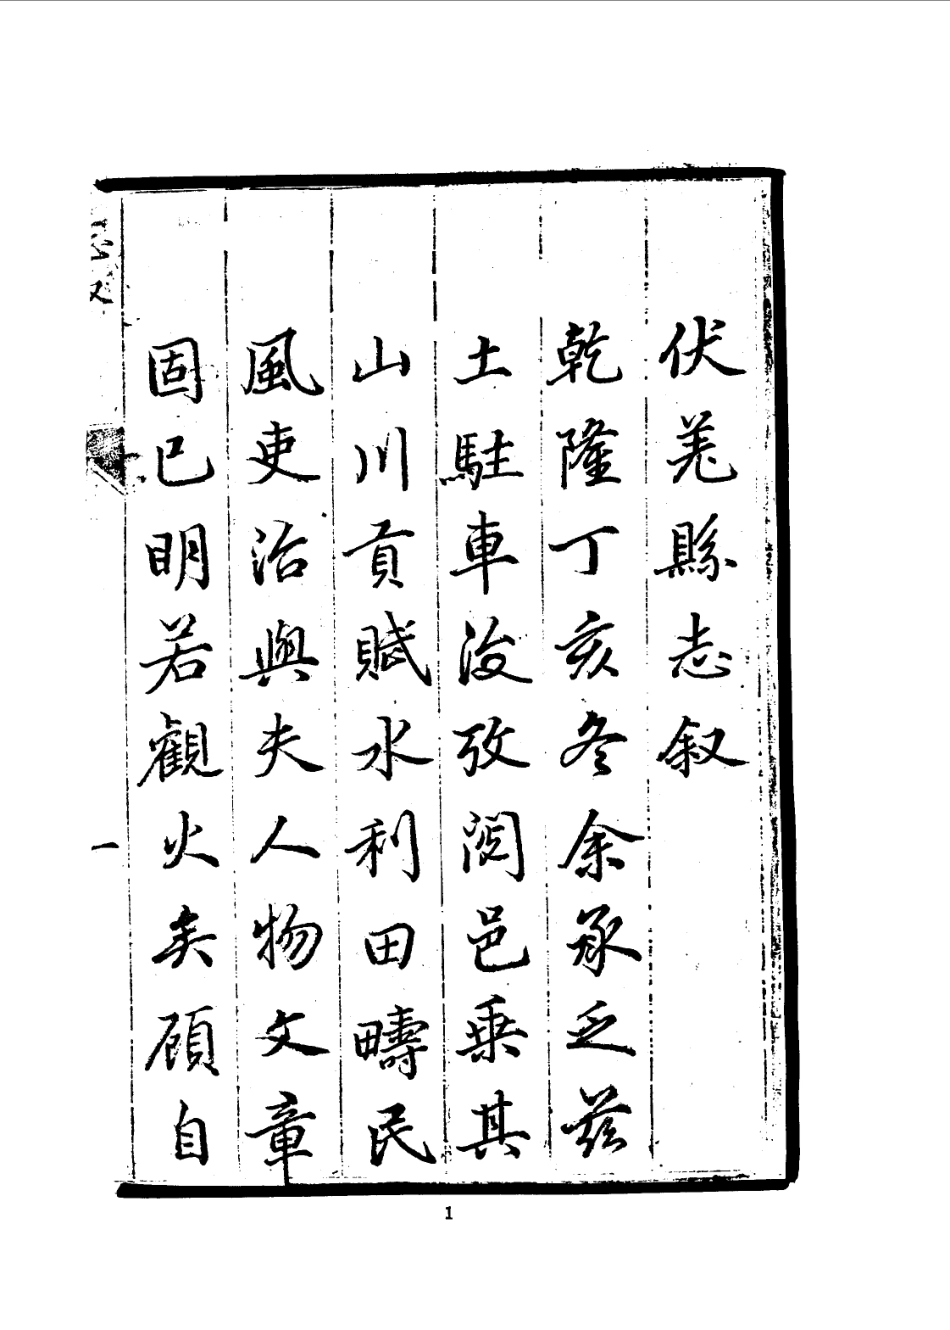 伏羌縣志叙
乾隆丁亥冬余承乏兹
土駐車後攷閱邑乗其
山川貢賦水利田疇民
風吏治與夫人物文章
固已明若觀火矣顧自
一
1